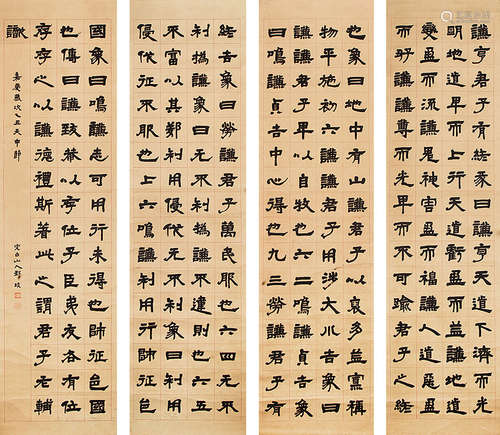 謙亨君子有終彖曰謙亨天道下濟而光
明地道卑而上行天道虧盈而益謙地道
變盈而流謙鬼神害盈而福謙人道惡盈
而好謙尊而光卑而不可踰君子之終
象曰地中有山謙君子以裒多益寡稱
物平施初六謙君子用涉大川吉象曰
謙君子卑以自牧也六二鳴謙貞吉象
曰鳴謙貞吉中心得也九三勞謙君子有
終吉象曰勞謙君子萬民服也六四无不
利撝謙象曰无不利撝謙不違則也六五
不富以其鄰利用侵伐无不利象曰利用
侵伐征不服也上六鳴謙利用行師征邑
國象曰鳴謙志可用行未得也師征邑國
也傳曰謙致恭以存位子臣各有位
存存之以謙德禮斯著此之謂君子輔
識
嘉慶歲次乙丑天中節 完白山人鄧琰